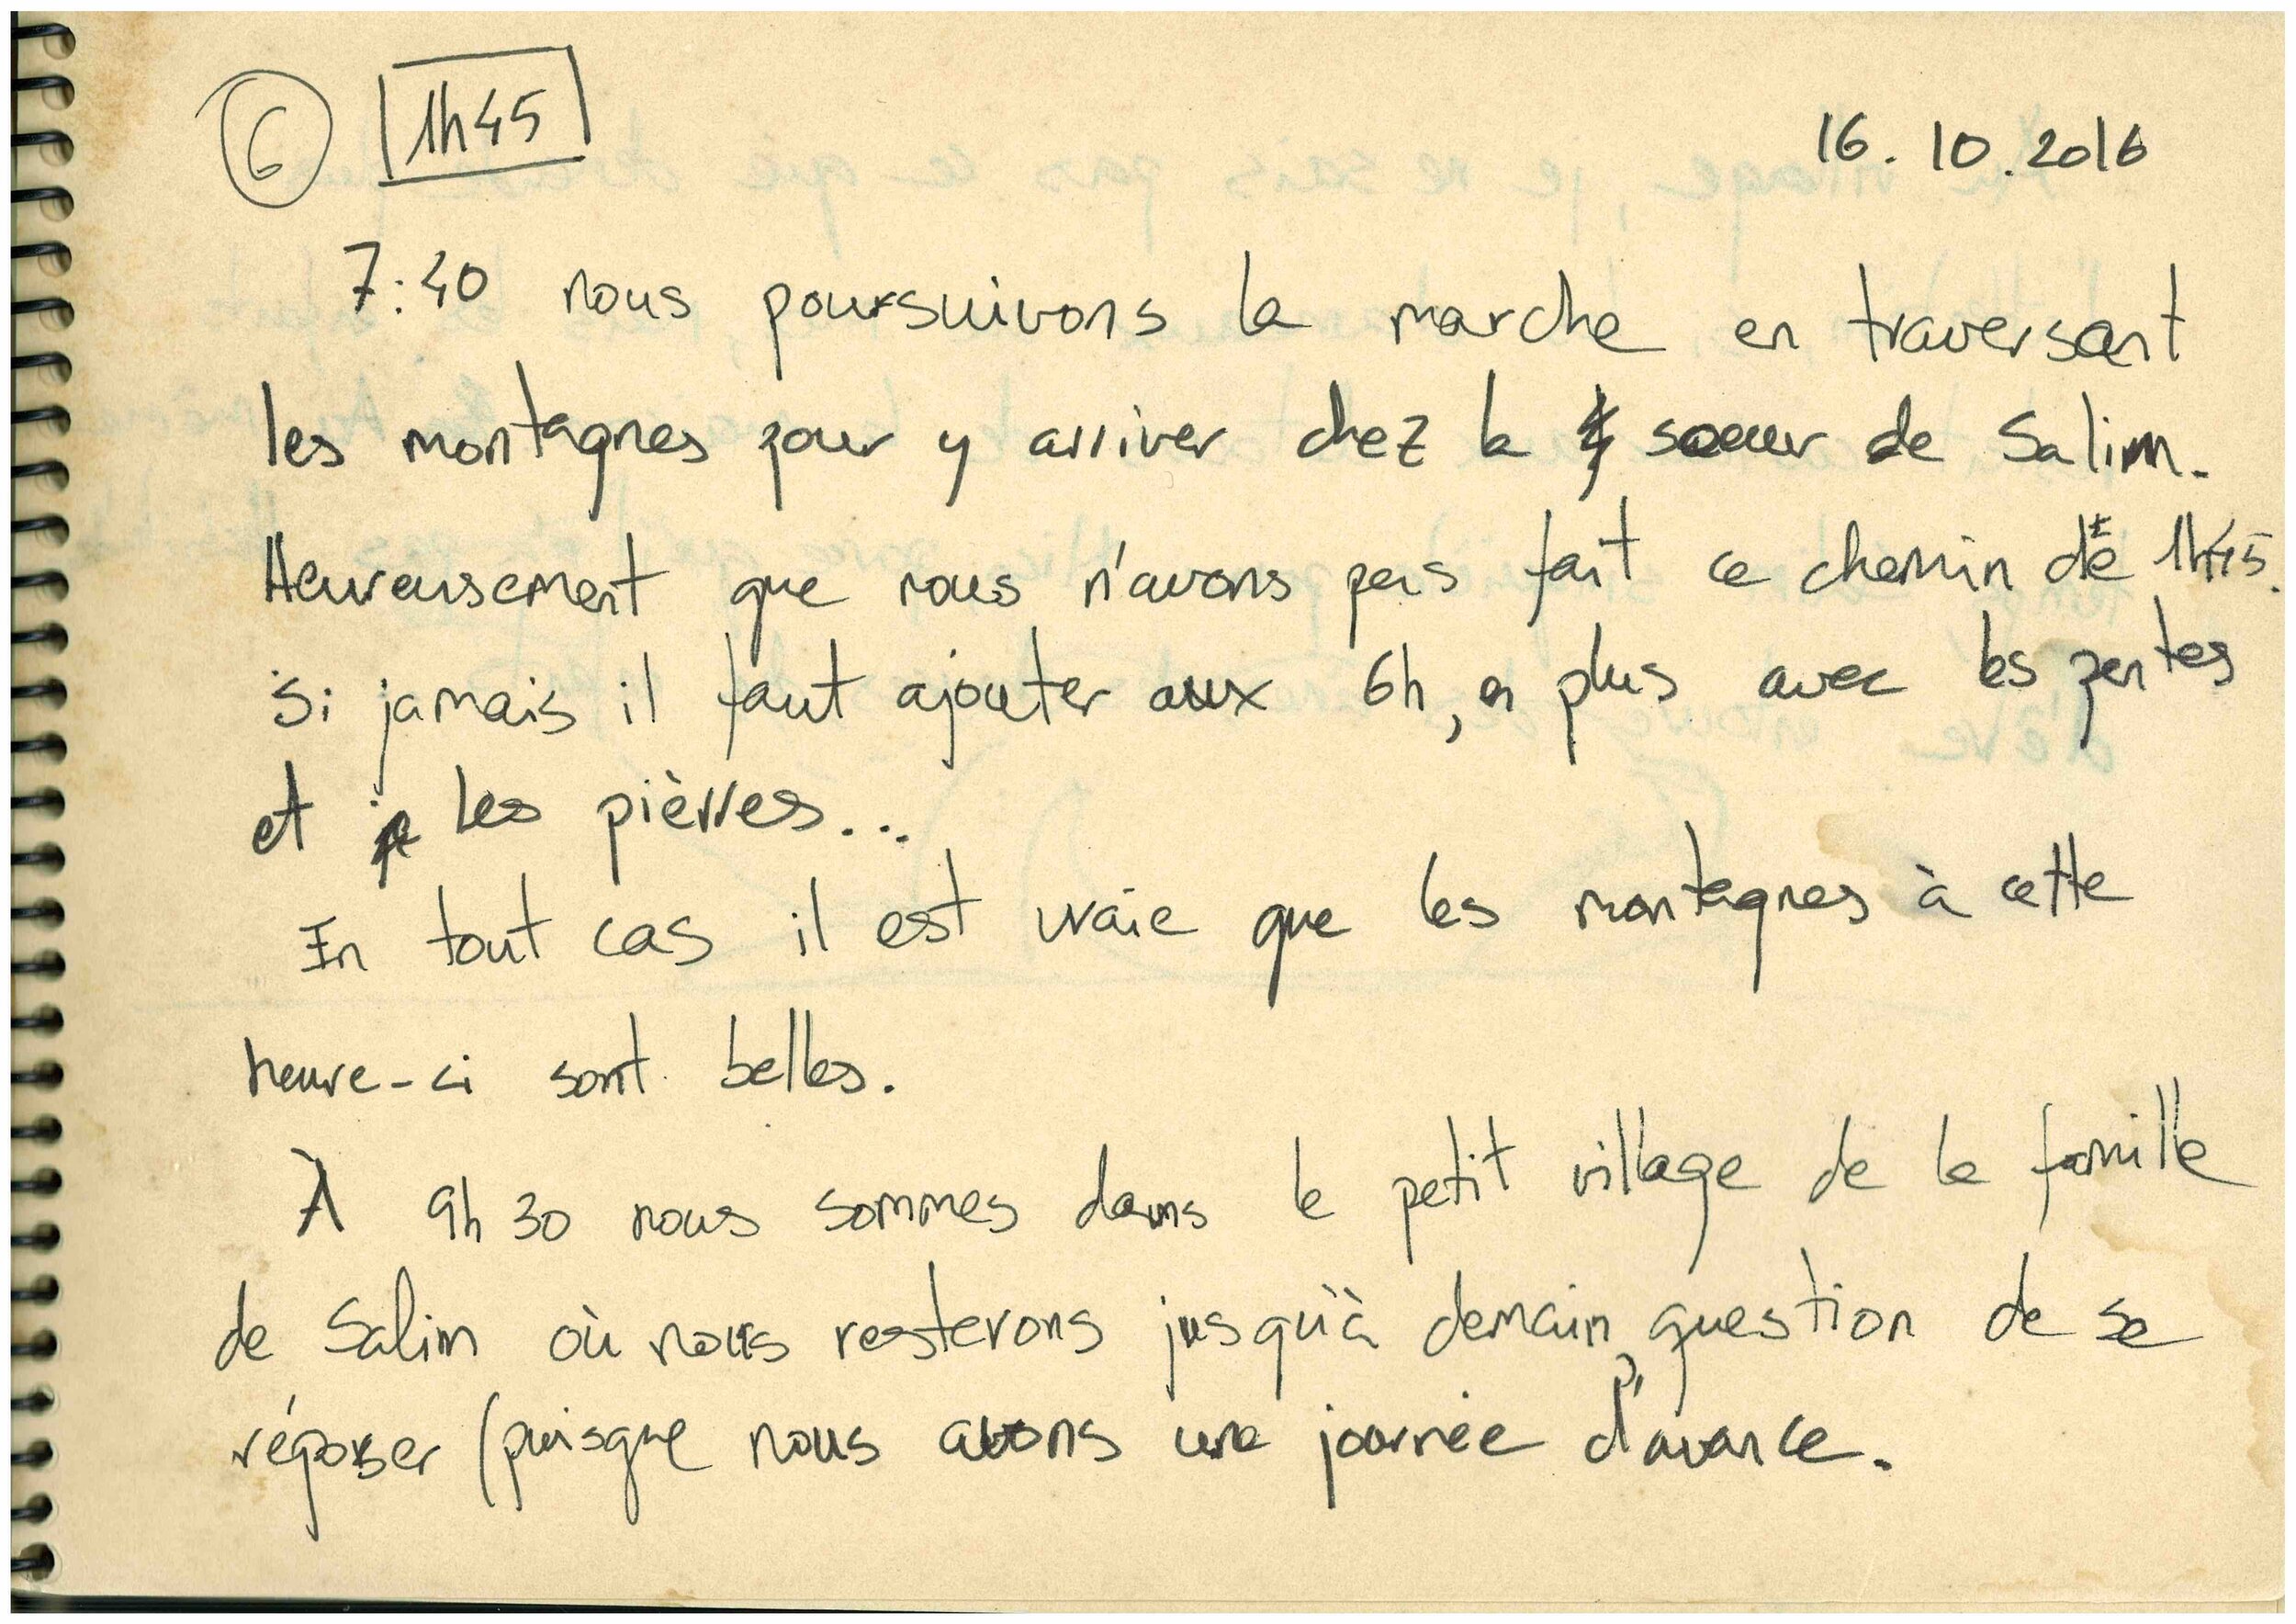 6 1h45
16.10.2016
7:40 nous poursuivons la marche en traversant
les montagnes pour y arriver chez la soeur de Salim.
Heureusement que nous n'avons pas fait ce chemin de 1h45.
Si jamais il faut ajouter aux 6h, en plus avec les pentes
et les pièrres...
En tout cas il est vraie que les montagnes à cette
heure-ci sont belles.
À 9h30 nous sommes dans le petit village de la famille
de Salim où nous resterons jusqu'à demain, question de se
réposer (puisque nous avons une journée d'avance.